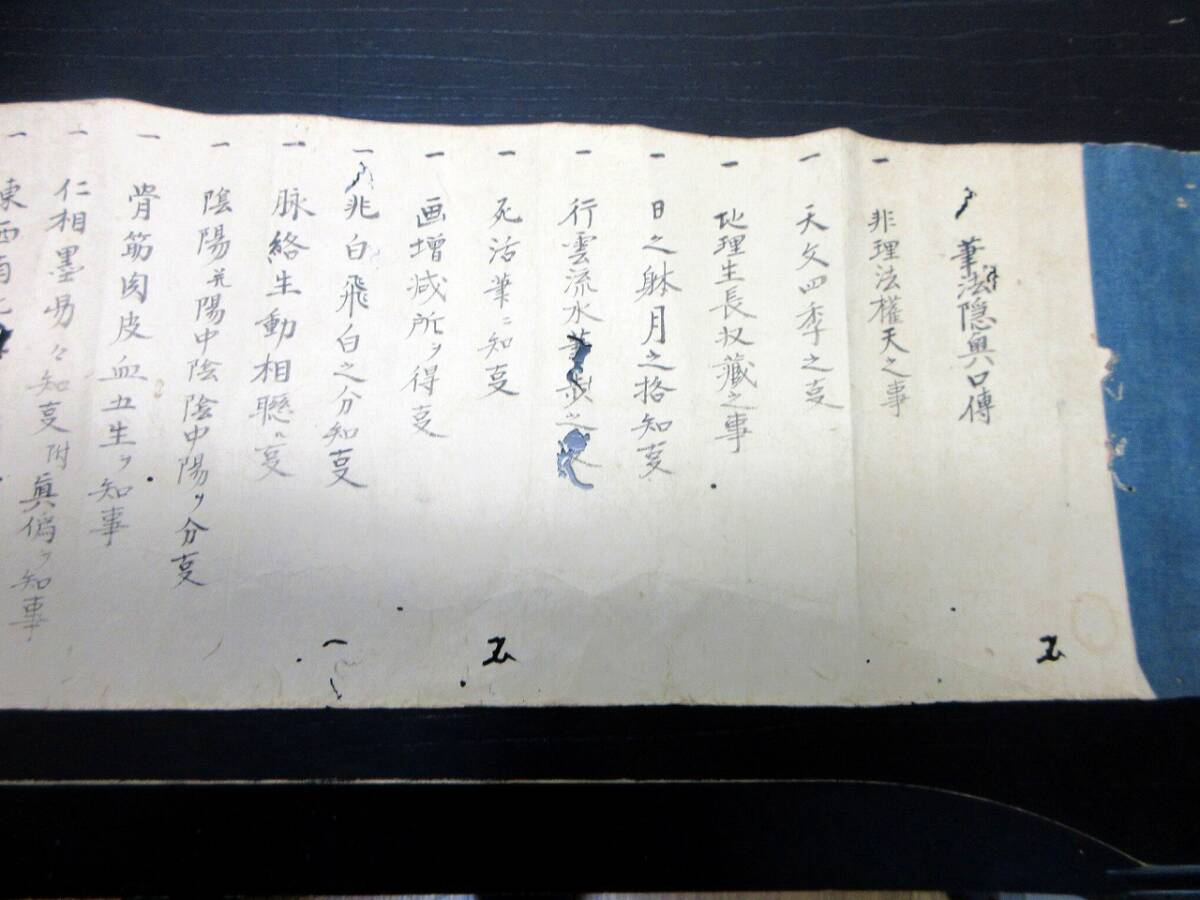 筆法隠奥口傳
一 非理法權天之事
一 天文四季之㕝
一 地理生長収藏之事
一 日之躰月之格知㕝
一 行雲流水筆 之
一 死活筆ニ知㕝
一 画増减所ヲ得㕝
一 非白飛白之分知㕝
一 脉絡生動相聯ル㕝
一 陰陽并陽中陰陰中陽ヲ分㕝
一 骨筋肉皮血五生ヲ知事
一 仁相墨易々知㕝附眞僞ヲ知事
一 東西南北